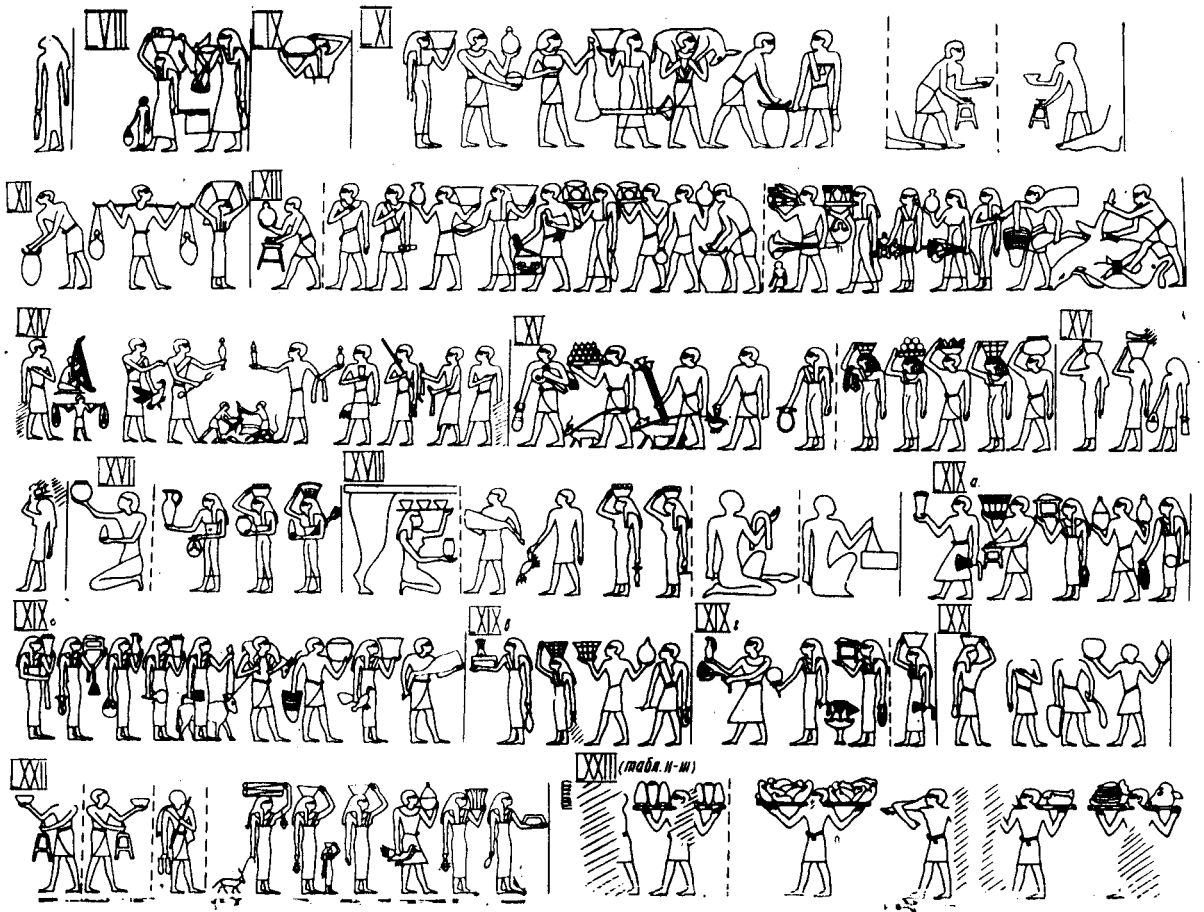 VIII IX X
XII XIII
XIV XV XVI
XVII XVIII XIX а.
XIX б XIX в XIX г XXI
XXII XXIII (табл. II-III)